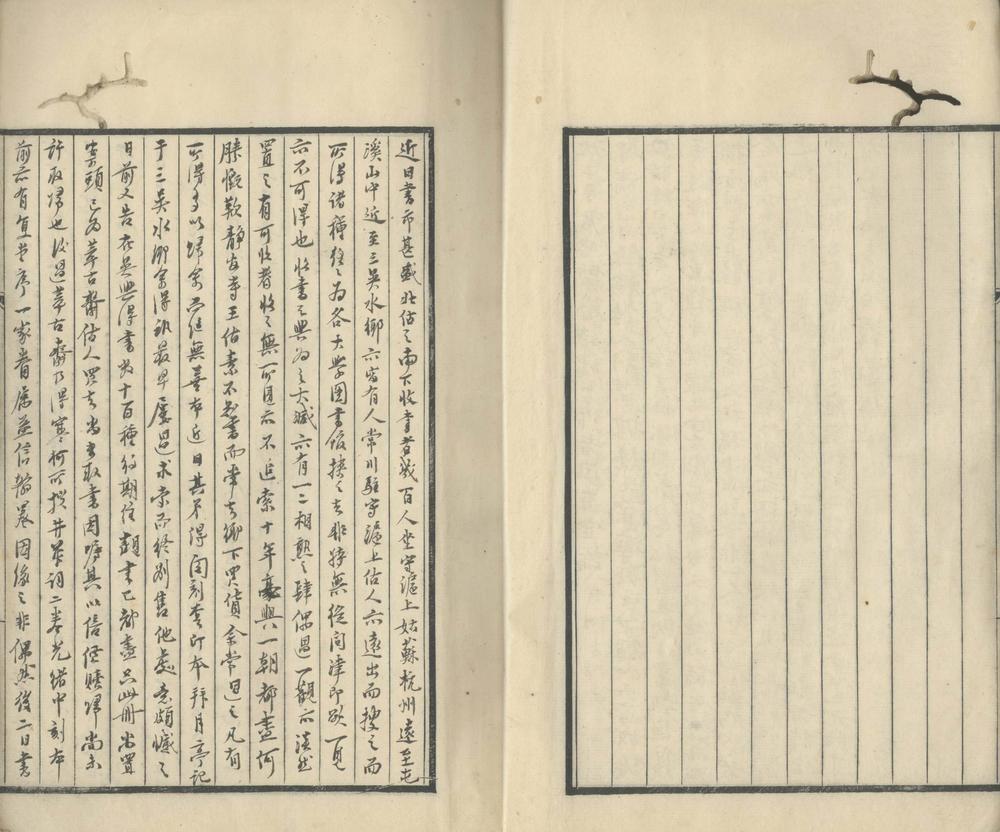 近日書市甚盛北估之南下收書者幾百人坐守滬上姑蘇杭州遠至屯
溪山中近至三吳水鄉亦皆有人常川駐守滬上估人亦遠出而搜之而
所得諸種殆為各大學圖書館捆之去非特無從問津即欲一見
亦不可得也收書之興為之大減亦有一二相熟之肆偶過一觀亦淡然
置之有可收者收之無所見亦不追索十年豪興一朝都盡何
勝慨歎靜安寺王估素不知書而常去鄉下買貨余常過之凡有
所得多以歸余而從無善本近日其弟得閔刻套印本拜月亭記
于三吳水鄉余得訊最早屢過未索而終別售他處意頗憾之
日前又告在吳興得書數十百種約期往觀書已都盡只此冊尚置
案頭已為萃古齋估人買去尚未取書因囑其以信侄賺歸尚未
許取歸也後過萃古齋乃得寒柯所撰井華詞二卷光緒中刻本
前亦有復堂序一家眷屬並信静農因緣之非偶然後二日書